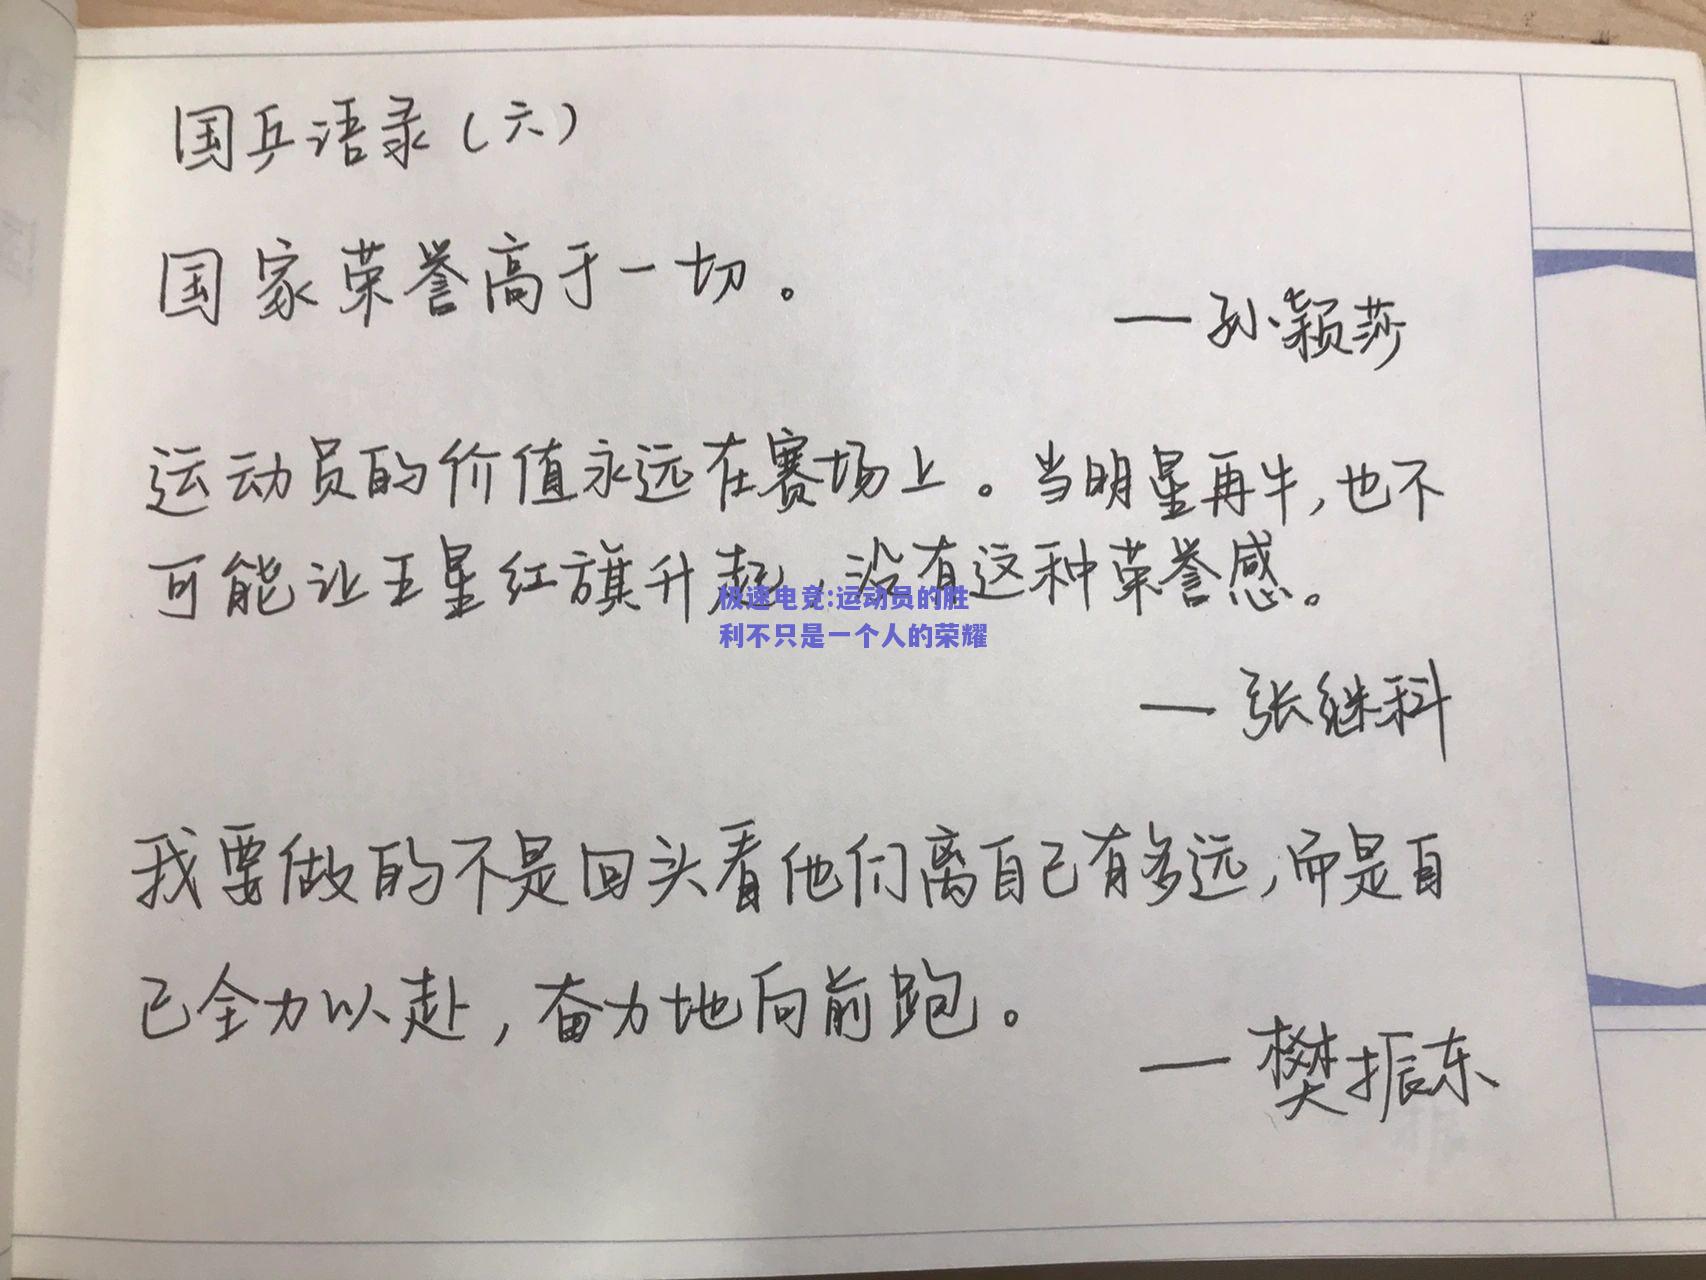 国乒语录(六)
国家荣誉高于一切。
—孙颖莎
运动员的价值永远在赛场上。当明星再牛,也不
可能让五星红旗升起,没有这种荣誉感。
极速电竞:运动员的胜
利不只是一个人的荣耀
—张继科
我要做的不是回头看他们离自己有多远,而是自
己全力以赴,奋力地向前跑。
—樊振东